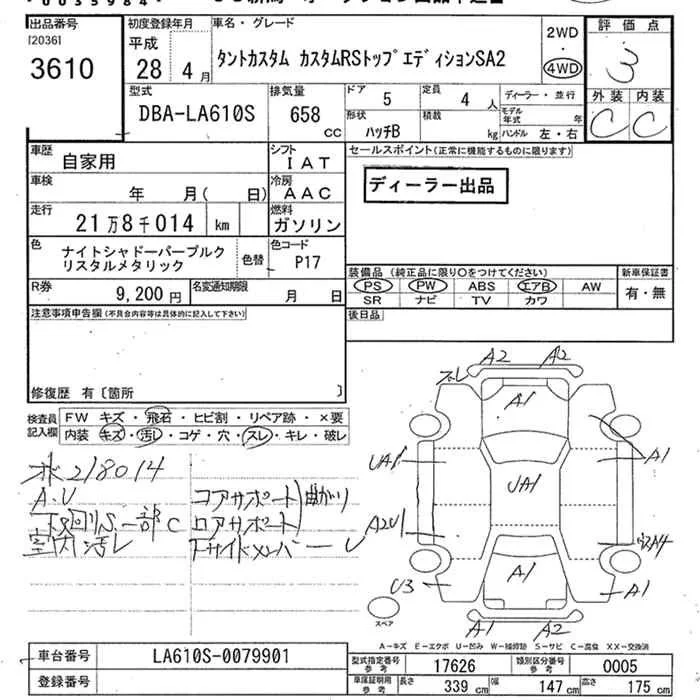 出品番号
[2036]
3610
初度登録年月
平成
28 4 月
車名・グレード
タントカスタム カスタムRSトップエディションSA2
2WD
・
4WD
評価点
3
外装 内装
C C
型式
DBA-LA610S
排気量
658
cc
ドア
5
定員
4 人
ディーラー・並行
形状
ハッチB
積載
kg
モデル年式 年
ハンドル 左・右
車歴
自家用
シフト
IAT
セールスポイント(正常に機能するものに限ります)
ディーラー出品
車検
年 月( 日)
冷房
AAC
走行
21万8千014 km
燃料
ガソリン
色
ナイトシャドーパープルク
リスタルメタリック
色替
色コード
P17
装備品 (純正品に限り○をつけてください)
PS PW ABS エアB AW
SR ナビ TV カワ
新車保証書
有・無
R券
9,200 円
名変通知期限
月 日
注意事項申告欄(不具合内容等は具体的に記入して下さい)
後日品
修復歴 有〔箇所 〕
検査員
記入欄
FW キズ・飛石・ヒビ割・リペア跡・×要
内装・キズ・汚レ・コゲ・穴・スレ・キレ・破レ
218014
A.U
下回りS 一部C
室内汚レ
コアサポート
ロアサポート
曲がり
サイドメンバー
A2 A2
ズレ
A1
UA1
A1
UA1
A2U
A1
U3
A1
A1 A2
スペア
A-キズ E-エクボ U-凹み W-補修跡 S-サビ C-腐食 XX-交換済
車台番号
LA610S-0079901
登録番号
型式指定番号
参考
17626
類別区分番号
参考
0005
車庫証明用
参考
長さ
339 cm
幅
147 cm
高さ
175 cm